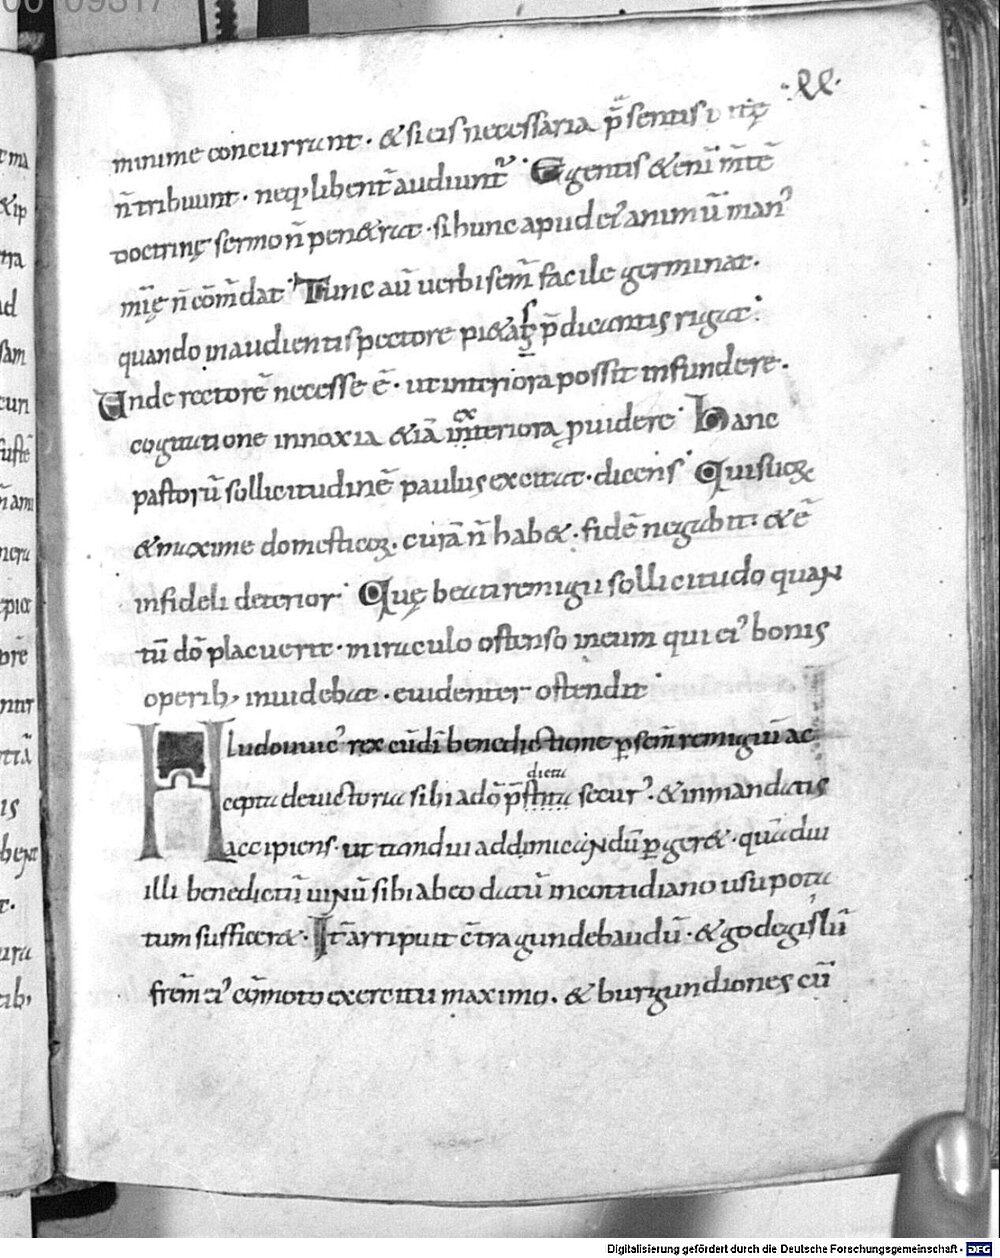 minime concurrunt · & si eis necessaria p̄sentis uitę
n̄ tribuunt · neq; libent̄ audiunt᷑ · Egentis & eni m̅te̅
doctrinę sermo n̄ pen&rat · si hunc apud ei' animū man'
mi̅ę n̄ cōm̄dat · Tunc aū uerbi sem̄ facile germinat ·
quando in audientis pectore pi&as p̄dicantis rigat :
Unde rectorē necesse ē · ut interiora possit infundere ·
cogitatione innoxia &iā exteriora puidere · Hanc
pastorū sollicitudinē paulus excitat · dicens · Qui suoꝝ
& maxime domesticoꝝ · curā n̄ hab& · fidē negabit : & ē
infideli deterior · Quę beati remigii sollicitudo quan
tū dō placuerit · miraculo ostenso in eum qui ei' bonis
operib; inuidebat · euidenter ostendit ·
Hludouuic' rex eūdē benedictione p scm̄ remigiū ac
dicta
cepta de uictoria sibi a dō p̄stita secur' · & in mandatis
accipiens · ut tamdiu ad dimicandū pger& · quādiu
illi benedictū uinū sibi ab eo datū in cottidiano usu pota
tum suffecer& · It̄ arripuit c̄tra gundebaudū · & godegislū
frem̄ ei' cōmoto exercitu maximo · & burgundiones cū
Digitalisierung gefördert durch die Deutsche Forschungsgemeinschaft - DFG